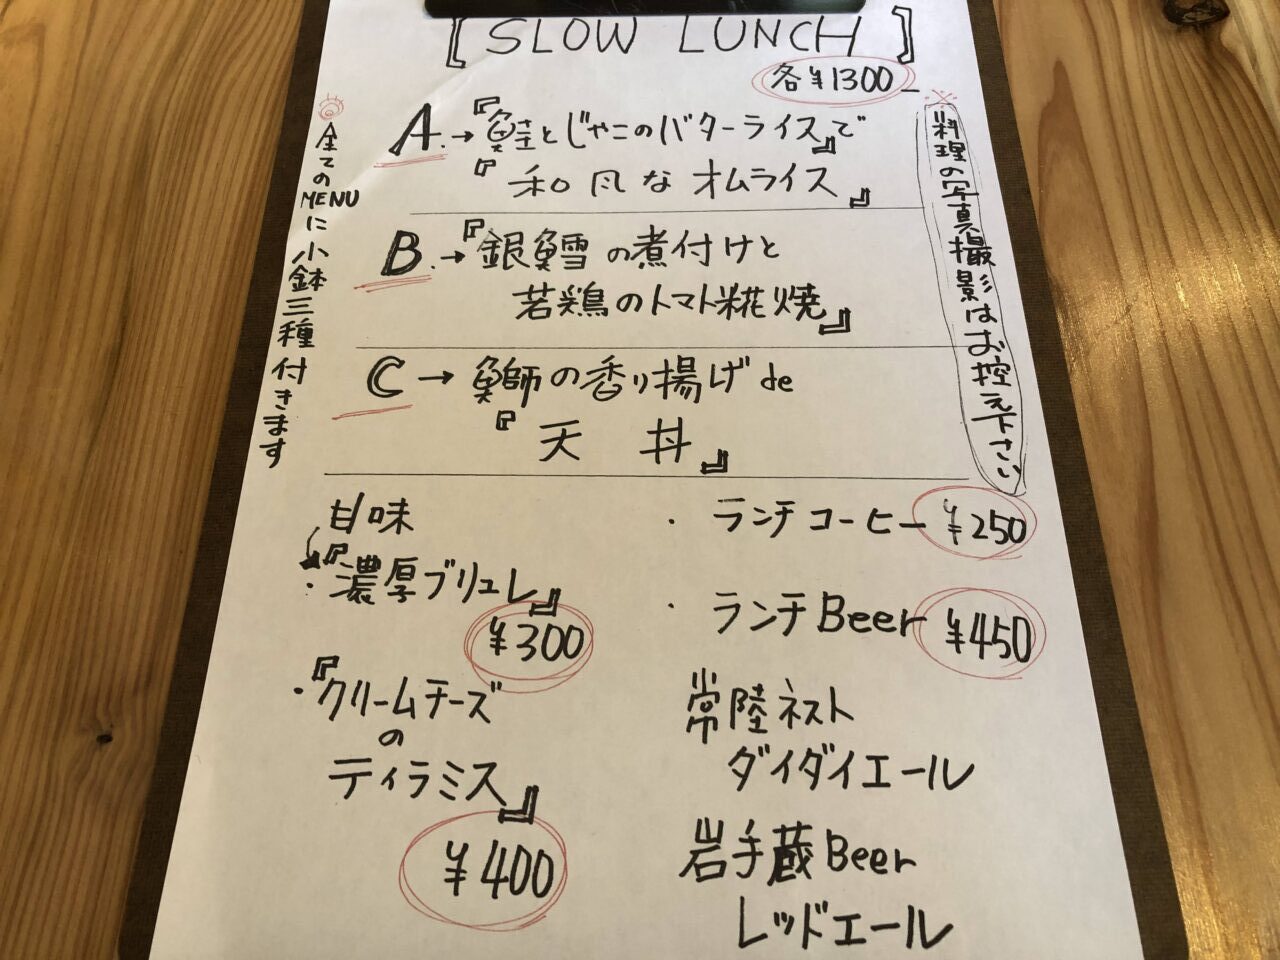 [SLOW LUNCH]
各¥1300-
A.→『鮭とじゃこのバターライス』で
『和風なオムライス』
B.→『銀鱈の煮付けと
若鶏のトマト糀焼』
C→鰤の香り揚げde
『天丼』
◎全てのMENUに小鉢三種付きます
※料理の写真撮影はお控え下さい
甘味
・『濃厚ブリュレ』
¥300
・『クリームチーズ
の
ティラミス』
¥400
・ランチコーヒー ¥250
・ランチBeer ¥450
常陸ネスト
ダイダイエール
岩手蔵Beer
レッドエール